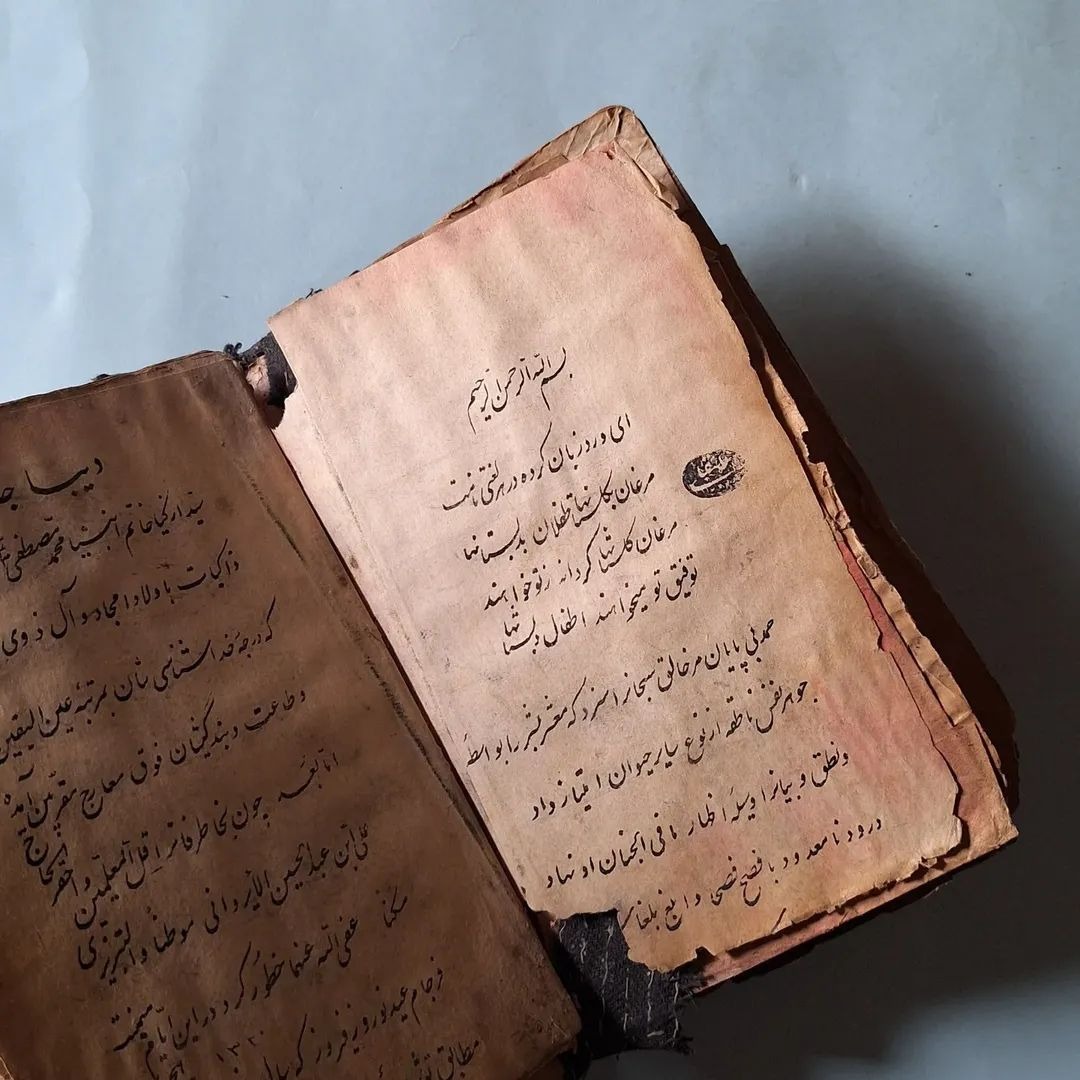 بسم الله الرحمن الرحیم
ای ورد زبان کرده در هر لغتی نامت
مرغان بگلستانها طفلان بدبستانها
مرغان گلستانها شکرانه ز تو خواهند
توفیق تو میخواهند اطفال دبستانها
حمد بی پایان مر خالق سبحانرا سزد که معشر بشر را بواسطهٔ
جوهر نفس ناطقه از نوع سایر حیوان امتیاز داد
ونطق و بیانرا وسیلهٔ اظهار مافی الجنان او نهاد
درود نامعدود بافصح فصحی وابلغ بلغا
دیباجه
خاتم انبیا محمد مصطفی
ذاکیات باولاد امجاد وآل ذوی
که درجهٔ قد شناسی شان بمرتبهٔ عین الیقین
وطاعت وبندگیشان فوق معارج مقربین آمده
اما بعد چون بخاطر فاتر اقل المعلمین واحقر الحاج
تقی ابن عبدالحسین الایروانی موطنا والتبریزی
سکنی عفی الله عنهما خطور کرد در این ایام میمنت
فرجام عید نوروز فیروز که سال ۱۳۲۰
مطابق